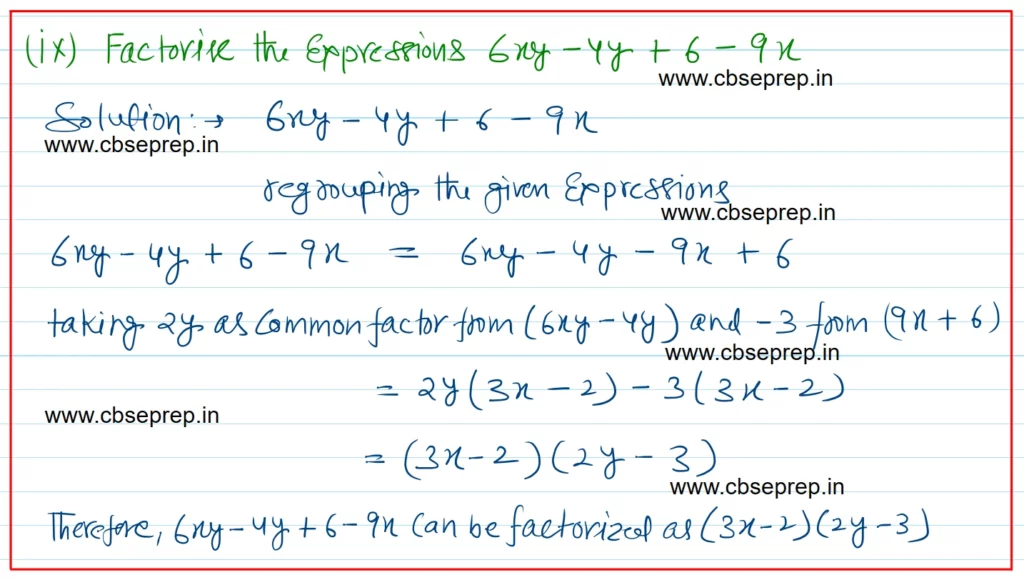 (ix) Factorise the Expressions 6xy - 4y + 6 - 9x
www.cbseprep.in
Solution:→ 6xy - 4y + 6 - 9x
www.cbseprep.in
regrouping the given Expressions
www.cbseprep.in
6xy - 4y + 6 - 9x = 6xy - 4y - 9x + 6
taking 2y as Common factor from (6xy - 4y) and -3 from (9x + 6)
www.cbseprep.in
= 2y(3x - 2) - 3(3x - 2)
www.cbseprep.in
= (3x - 2)(2y - 3)
www.cbseprep.in
Therefore, 6xy - 4y + 6 - 9x Can be factorized as (3x - 2)(2y - 3)